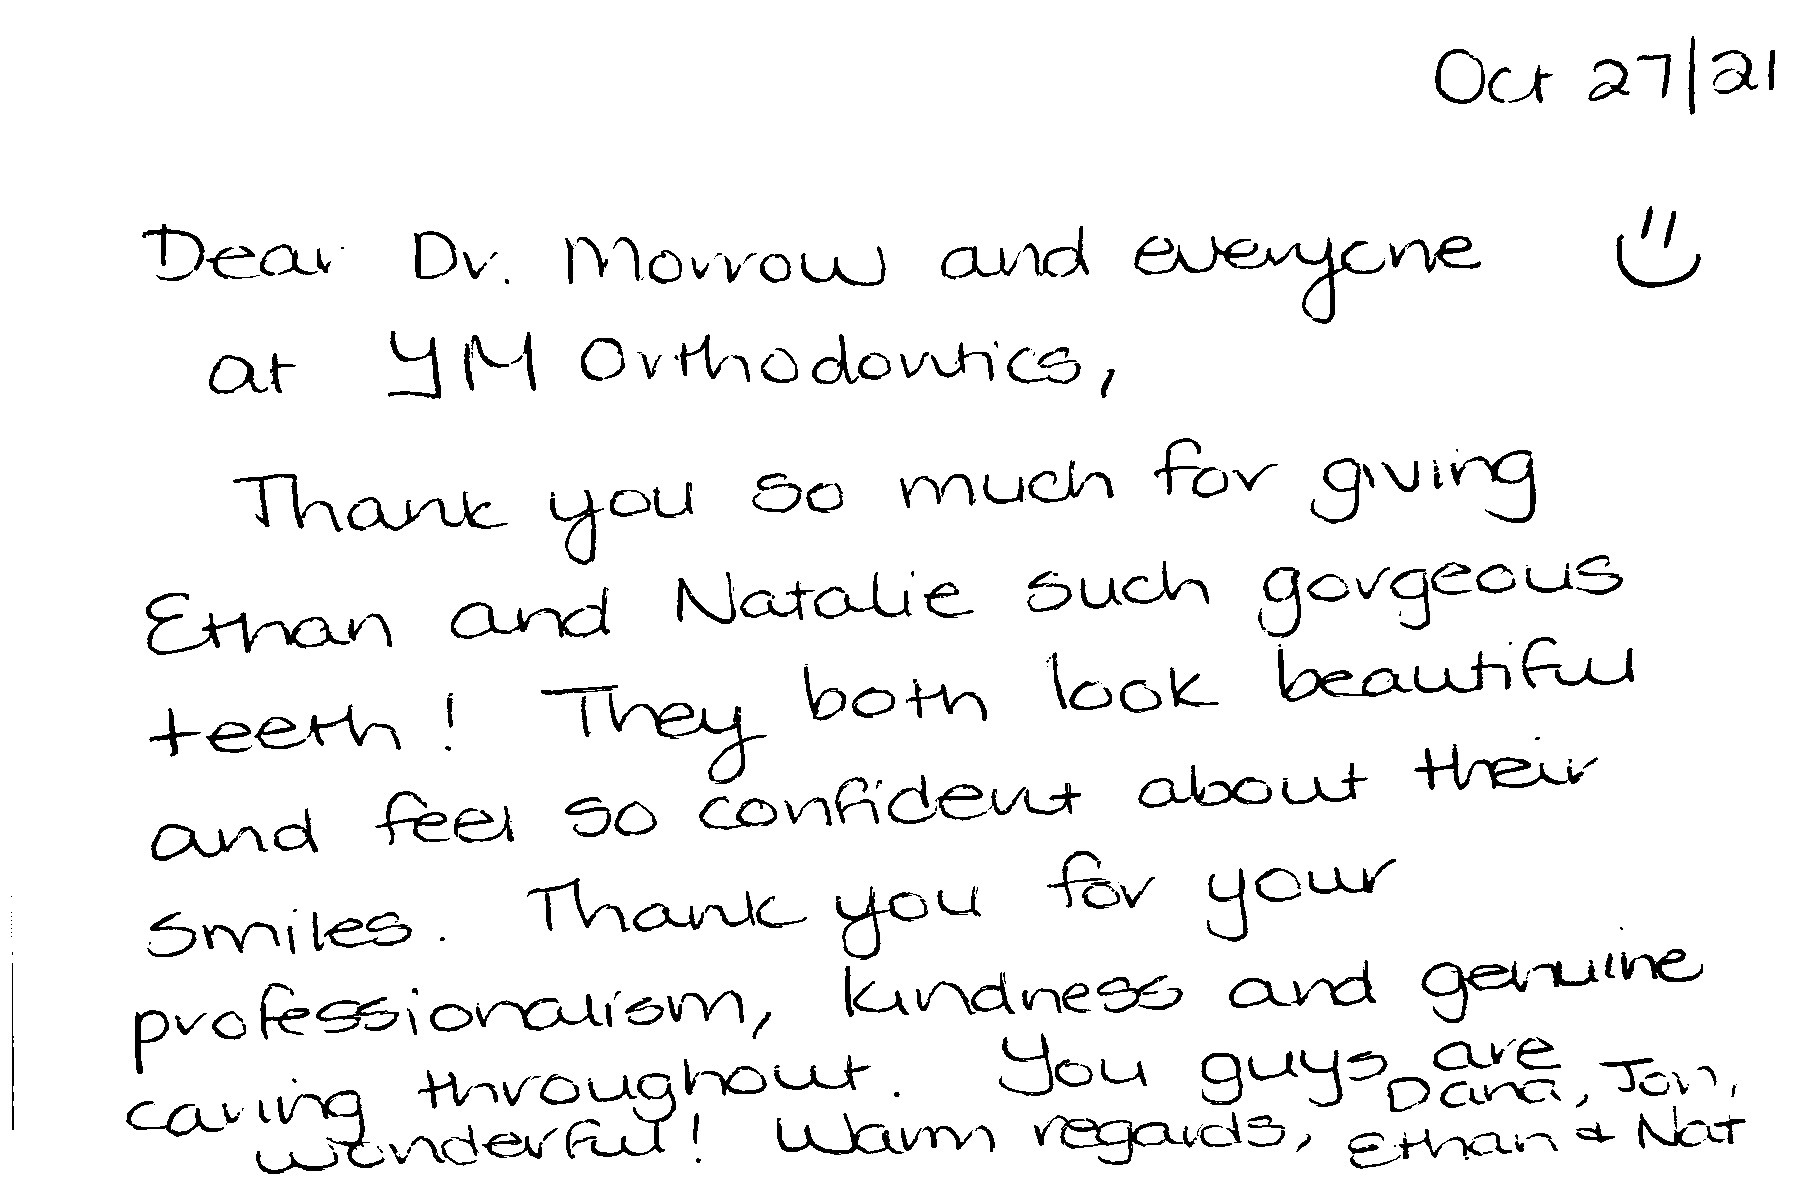 Oct 27/21
Dear Dr. Morrow and everyone
at YM Orthodontics,
Thank you so much for giving
Ethan and Natalie such gorgeous
teeth! They both look beautiful
and feel so confident about their
smiles. Thank you for your
professionalism, kindness and genuine
caring throughout. You guys are
wonderful! Warm regards, Dana, Jon,
Ethan & Nat